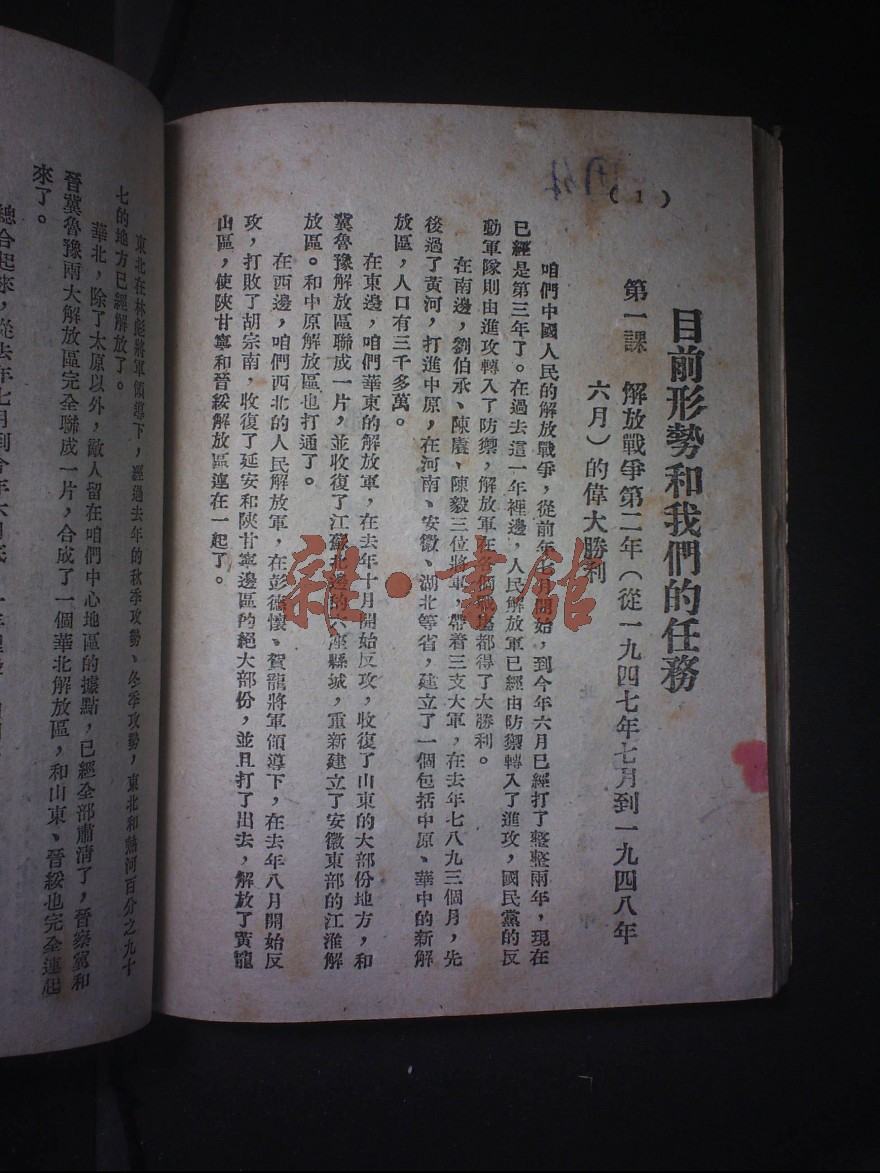 (1)
目前形勢和我們的任務
第一課　解放戰爭第二年(從一九四七年七月到一九四八年
六月)的偉大勝利
咱們中國人民的解放戰爭，從前年七月開始，到今年六月已經打了整整兩年，現在
已經是第三年了。在過去這一年裡邊，人民解放軍已經由防禦轉入了進攻，國民黨的反
動軍隊則由進攻轉入了防禦，解放軍在各個戰場都得了大勝利。
在南邊，劉伯承、陳賡、陳毅三位將軍，帶着三支大軍，在去年七八九三個月，先
後過了黃河，打進中原，在河南、安徽、湖北等省，建立了一個包括中原、華中的新解
放區，人口有三千多萬。
在東邊，咱們華東的解放軍，在去年十月開始反攻，收復了山東的大部份地方，和
冀魯豫解放區聯成一片，並收復了江蘇北邊的六座縣城，重新建立了安徽東部的江淮解
放區。和中原解放區也打通了。
在西邊，咱們西北的人民解放軍，在彭德懷、賀龍將軍領導下，在去年八月開始反
攻，打敗了胡宗南，收復了延安和陝甘寧邊區的絕大部份，並且打了出去，解放了黃龍
山區，使陝甘寧和晉綏解放區連在一起了。
東北在林彪將軍領導下，經過去年的秋季攻勢、冬季攻勢，東北和熱河百分之九十
七的地方已經解放了。
華北，除了太原以外，敵人留在咱們中心地區的據點，已經全部肅清了，晉察冀和
晉冀魯豫兩大解放區完全聯成一片，合成了一個華北解放區，和山東、晉綏也完全連起
來了。
總合起來，從去年七月到今年六月底，一年
雜·書館